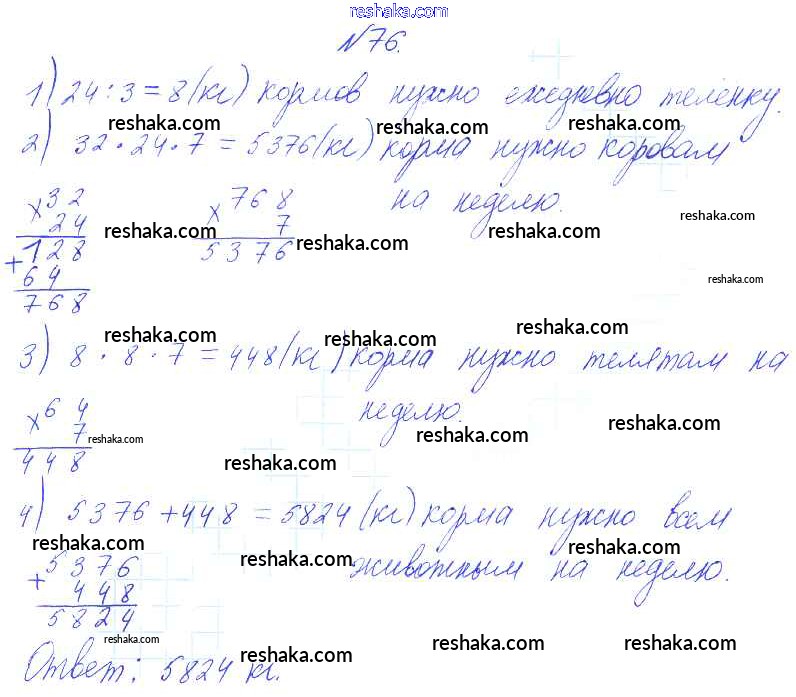 reshaka.com
№76.
1) 24 : 3 = 8 (кг) кормов нужно ежедневно теленку.
reshaka.com reshaka.com reshaka.com
2) 32 · 24 · 7 = 5376 (кг) корма нужно коровам
на неделю.
× 32 × 768
24 reshaka.com 7 reshaka.com reshaka.com
+ 128 5376
64 reshaka.com
768
reshaka.com reshaka.com reshaka.com
3) 8 · 8 · 7 = 448 (кг) корма нужно телятам на
неделю.
× 64
7 reshaka.com reshaka.com reshaka.com
448 reshaka.com
4) 5376 + 448 = 5824 (кг) корма нужно всем
reshaka.com reshaka.com reshaka.com
животным на неделю.
+ 5376
448
5824
reshaka.com reshaka.com reshaka.com reshaka.com
Ответ: 5824 кг.